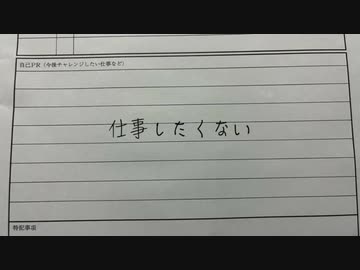 自己PR（今後チャレンジしたい仕事など）
仕事したくない
特記事項